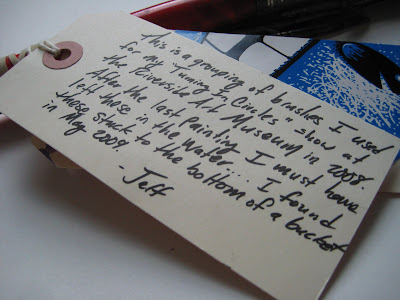 This is a grouping of brushes I used
for my "Turning In Circles" show at
the Riverside Art Museum in 2008.
After the last Painting I must have
left those in the Water... I found
those stuck to the bottom of a bucket
in May 2009.
- Jeff